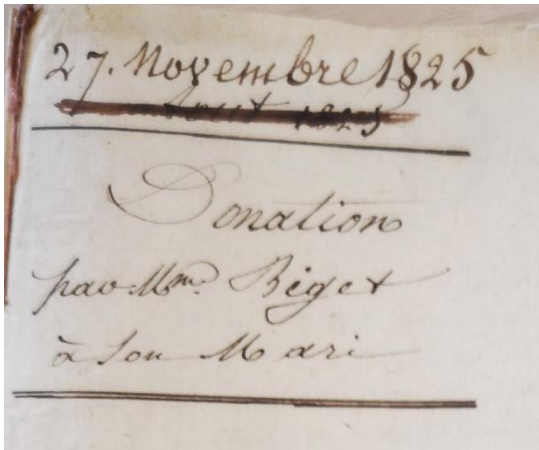 27. Novembre 1825
1825
Donation
par Mme. Biget
à son Mari